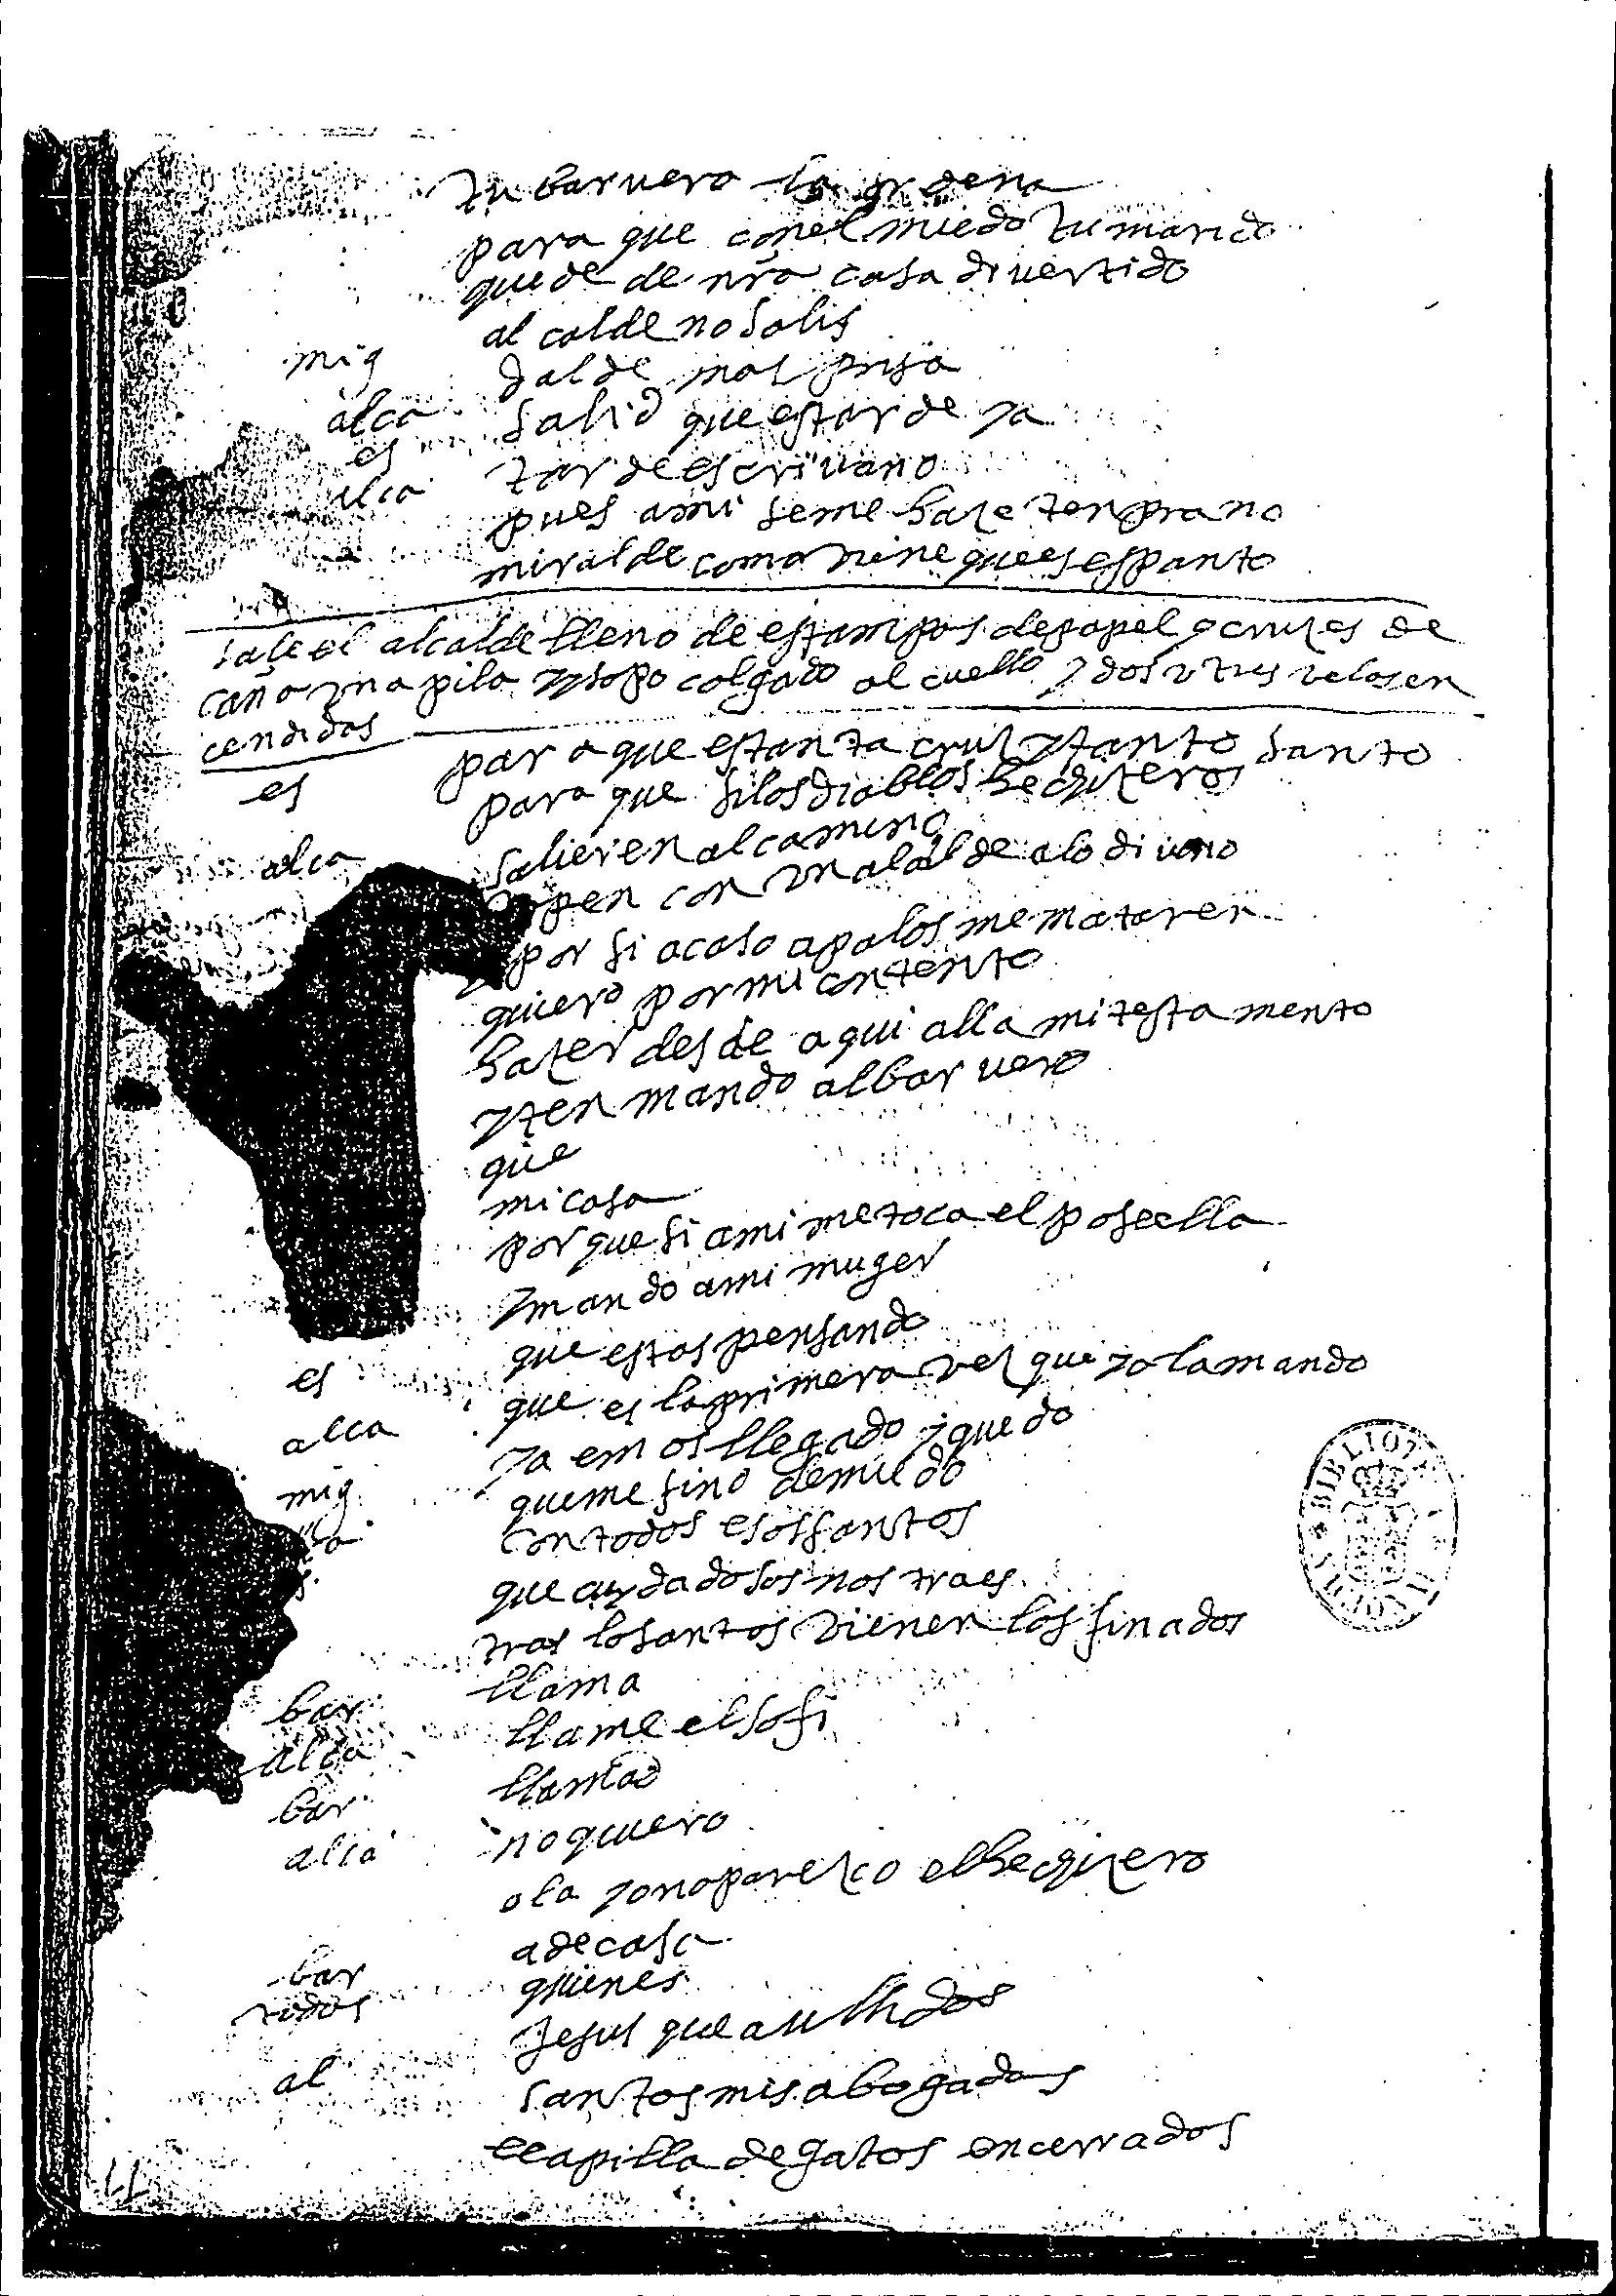 tu baruero lo ordena
para que con el miedo tu marido
quede de nra casa diuertido
al calde no salis
mig dalde mas prisa
alca salid que es tarde ya
es tarde escriuano
alca pues ami seme haze tenprano
miralde como viene que es espanto
sale el alcalde lleno de estampas de papel y cruzes de
caña vna pila ysopo colgado al cuello y dos v tres velas en
cendidas
es para que es tanta cruz y tanto santo
para que si los diablos hechizeros
alca salieren al camino
topen con vn alcalde a lo diuino
y por si acaso a palos me mataren
quiero por mi contento
hazer desde aqui alla mi testamento
yten mando al baruero
que
mi casa
por que si ami me toca el poseella
y mando ami muger
es que estas pensando
alca que es la primera vez que yo la mando
mig ya emos llegado y quedo
que me fino de miedo
con todos esos santos
que cuydadosos nos traes
tras lo santos vienen los finados
bar llama
alca llame el sofi
bar llamad
alca no quiero
ola yo no parezco el hechizero
a de casa
bar quien es
todos Jesus que aullidos
al santos mis abogados
capilla de gatos encerrados